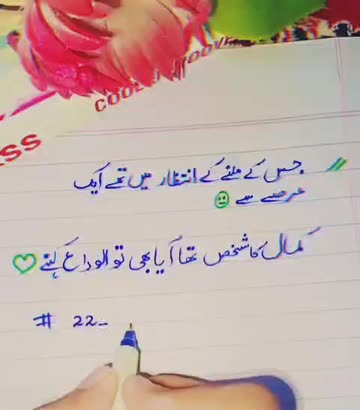 COOL
SS
جس کے ملنے کے انتظار میں تھے ایک
عرصے سے
کمال کا شخص تھا آیا بھی تو الوداع کہنے
# 22-